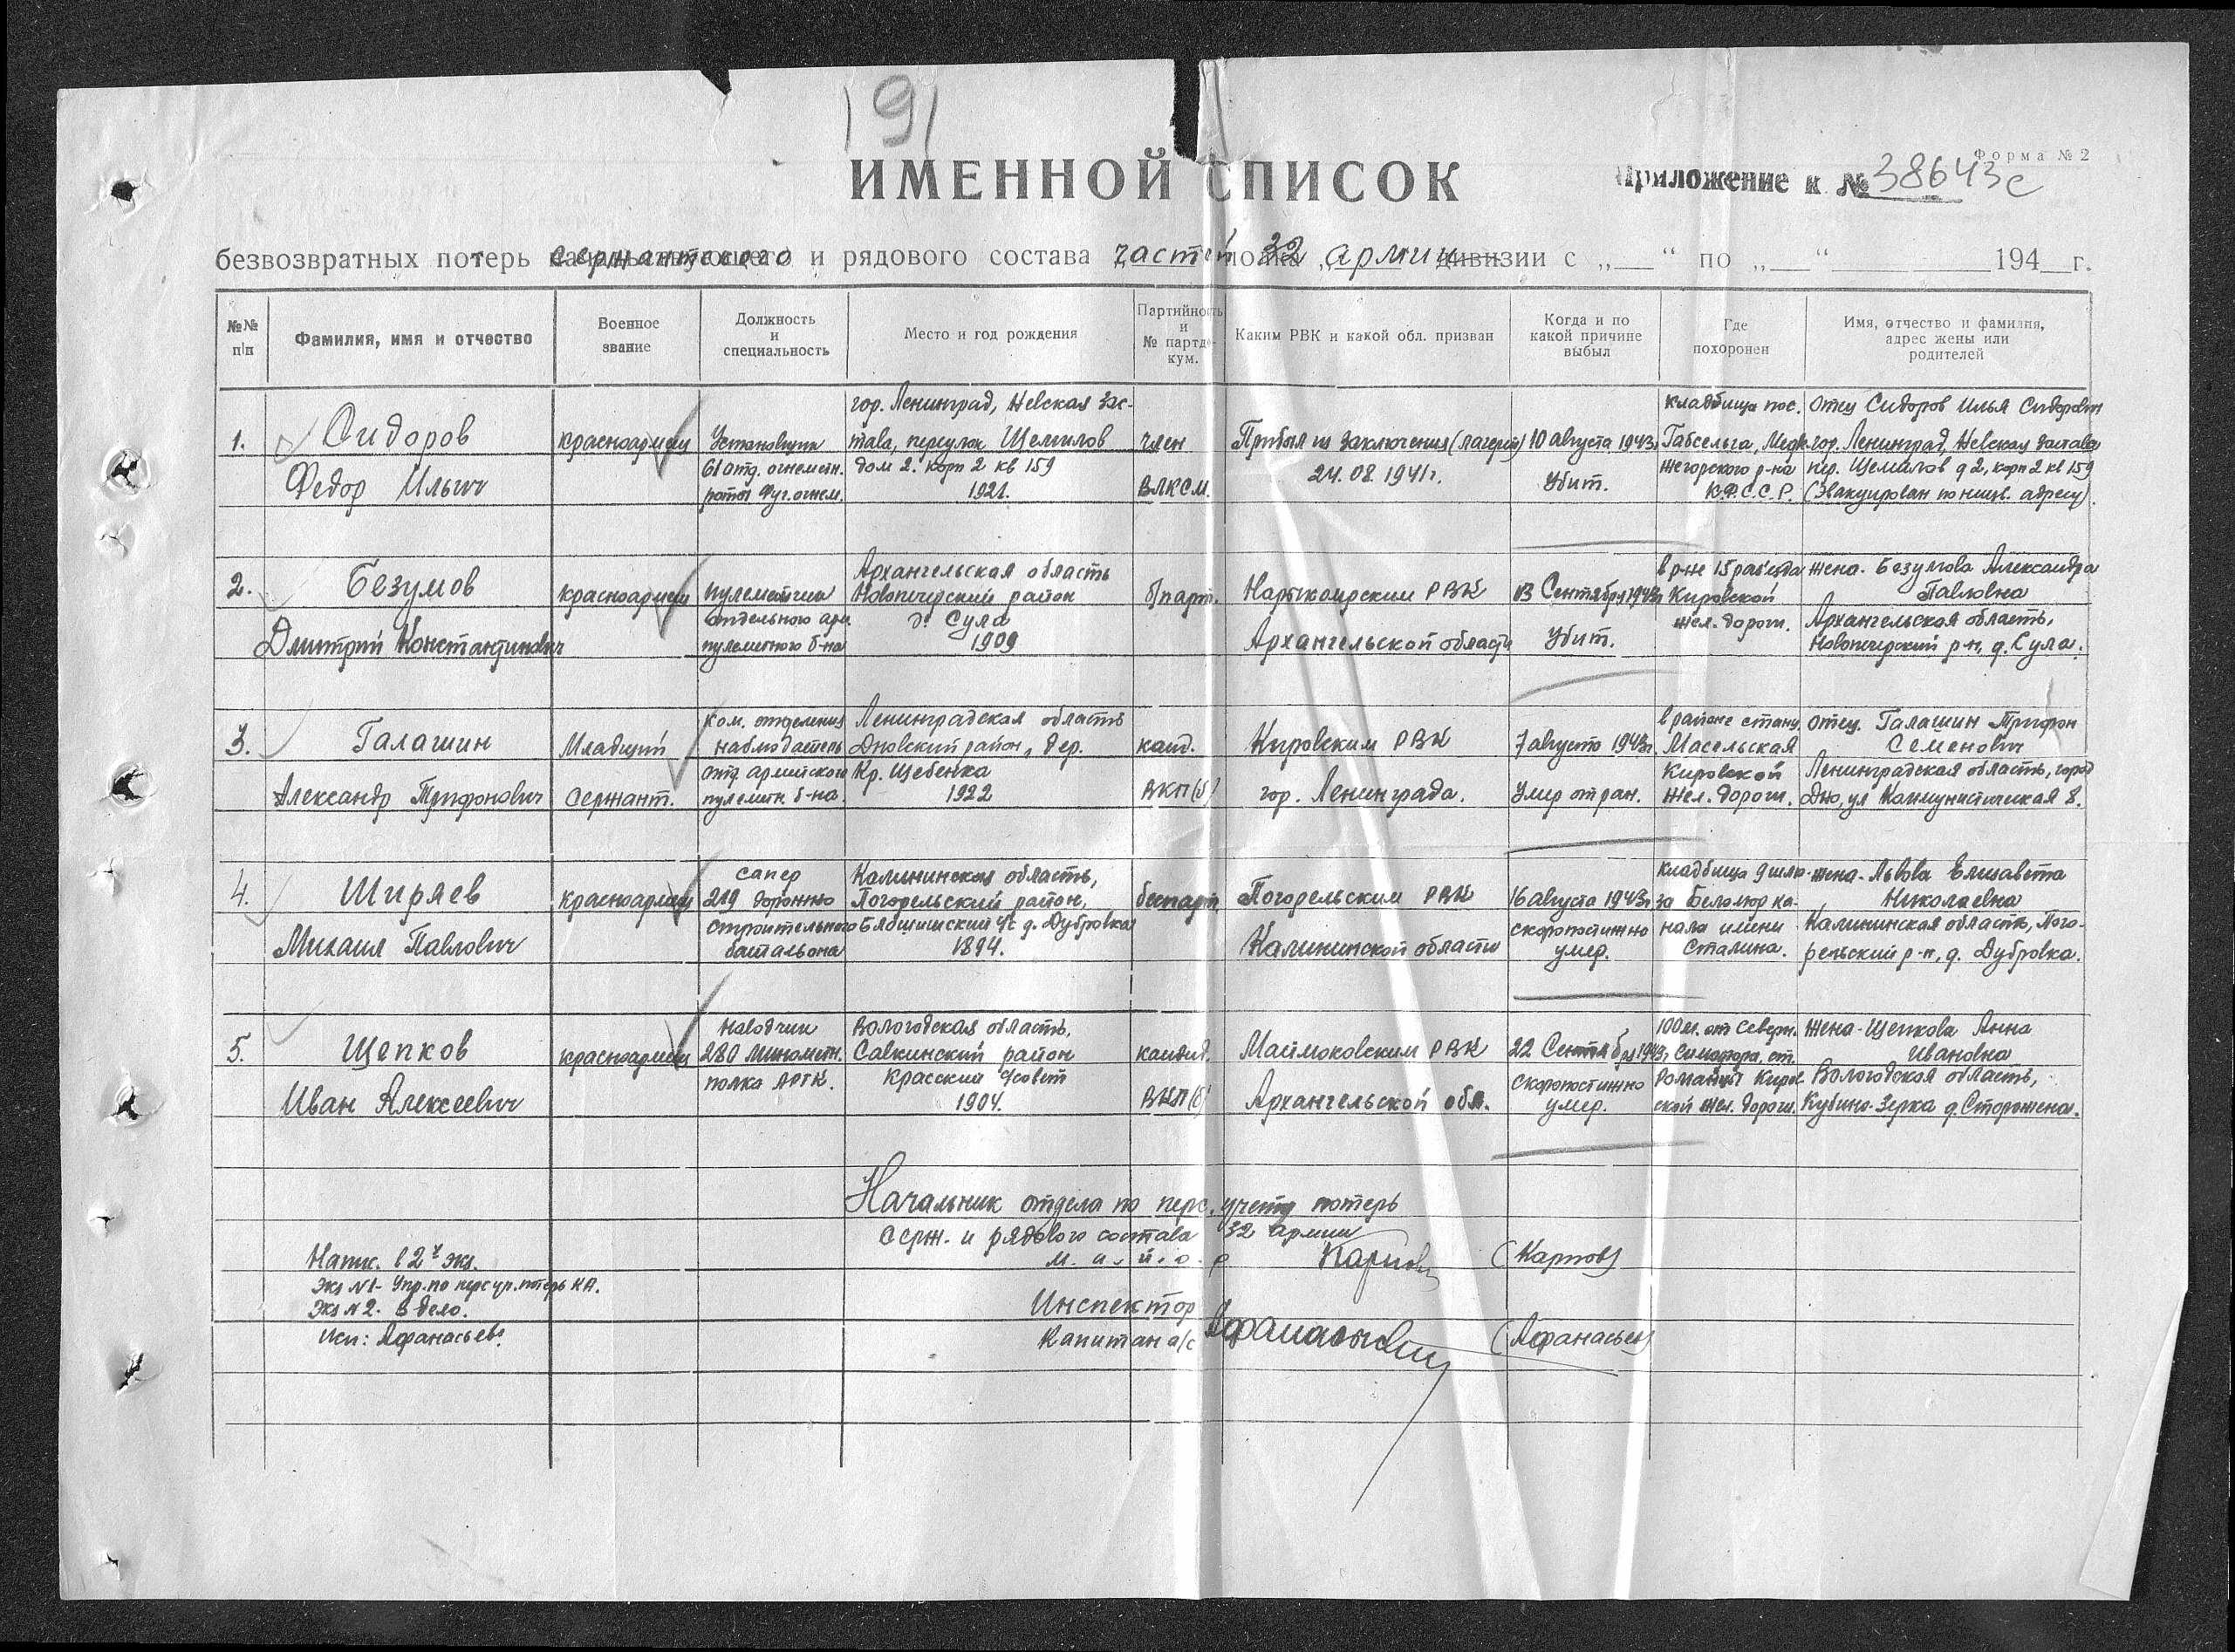 191
Форма № 2
ИМЕННОЙ СПИСОК
Приложение к № 38643с
безвозвратных потерь сержантского и рядового состава частей 32 армии дивизии с „ “ по „ “ 194 г.
№№ п/п
Фамилия, имя и отчество
Военное звание
Должность и специальность
Место и год рождения
Партийность и № партдокум.
Каким РВК и какой обл. призван
Когда и по какой причине выбыл
Где похоронен
Имя, отчество и фамилия, адрес жены или родителей
1.
Сидоров
Федор Ильич
красноармеец
Установщик
61 отд. огнеметн.
роты фуг. огнем.
гор. Ленинград, Невская зас-
тава, переулок Щемилов
дом 2. корп 2 кв 159
1921.
член
ВЛКСМ.
Прибыл из заключения (лагерей)
24.08.1941г.
10 августа 1943г.
Убит.
кладбище пос.
Габсельга, Медв-
жегорского р-на
К.Ф.С.С.Р.
отец Сидоров Илья Сидорович
гор. Ленинград, Невская застава
пер. Щемилов д 2, корп 2 кв 159
(Эвакуирован по неизв. адресу).
2.
Безумов
Дмитрий Константинович
красноармеец
пулеметчик
отдельного арм.
пулеметного б-на
Архангельская область
Новопечерский район
д. Сула
1909
б/парт.
Нарыкоирским РВК
Архангельской области
13 Сентября 1943г.
Убит.
в р-не 15 раз'езда
Кировской
жел. дороги.
жена. Безумова Александра
Павловна
Архангельская область,
Новопечерский р-н, д. Сула.
3.
Галашин
Александр Трифонович
Младший
сержант.
ком. отделения
наблюдатель
отд. армейского
пулеметн. б-на.
Ленинградская область
Дновский район, дер.
Кр. Щебенка
1922
канд.
ВКП(б)
Кировским РВК
гор. Ленинграда.
7 августа 1943г.
Умер от ран.
в районе станц.
Масельская
Кировской
жел. дороги.
отец. Галашин Трифон
Семенович
Ленинградская область, город
Дно, ул Коммунистическая 8.
4.
Ширяев
Михаил Павлович
красноармеец
сапер
219 дорожно
строительного
батальона
Калининская область,
Погорельский район,
д. Дубровка
1894.
беспарт.
Погорельским РВК
Калининской области
16 августа 1943г.
скоропостижно
умер.
кладбище 9 шлю-
за Беломор ка-
нала имени
Сталина.
жена - Львова Елизавета
Николаевна
Калининская область, Пого-
рельский р-н, д. Дубровка.
5.
Щепков
Иван Алексеевич
красноармеец
наводчик
280 минометн.
полка АРГК.
Вологодская область,
Савкинский район
Красский с/совет
1904.
кандид.
ВКП(б)
Маймоковским РВК
Архангельской обл.
22 Сентября 1943г.
скоропостижно
умер.
100м. от северн.
симофора, ст.
Романцы Киров-
ской жел. дороги.
жена - Щепкова Анна
Ивановна
Вологодская область,
Кубино-Зерка д. Сторожена.
Начальник отдела по перс. учету потерь
серж. и рядового состава 32 армии
майор Карпов (Карпов)
Инспектор
Капитан а/с Афанасьев (Афанасьев)
Напис. в 2х экз.
Экз №1 - Упр. по перс уч. потерь КА.
Экз №2. В дело.
Исп: Афанасьев.